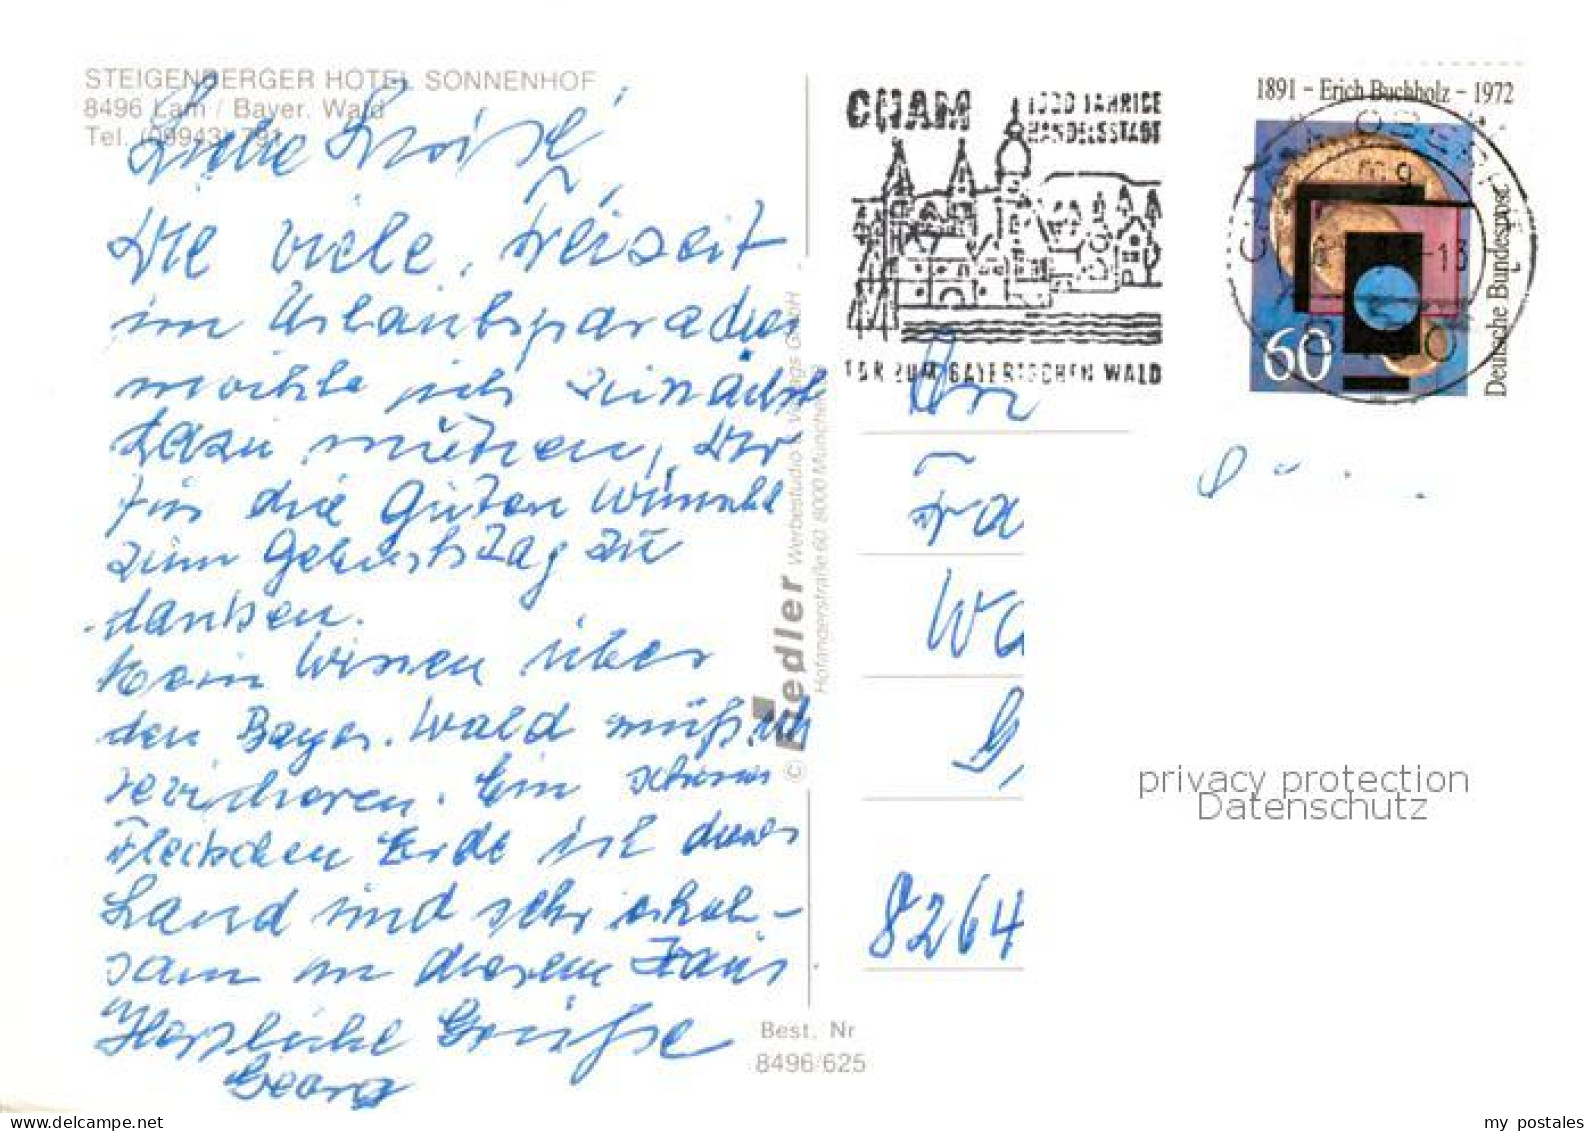 STEIGENBERGER HOTEL SONNENHOF
8496 Lam / Bayer. Wald
Tel. (09943) 791
Liebe
Die viele Freizeit
im Urlaubsparadies
möchte ich zunächst
dazu nützen, Dir
für die Guten Wünsche
zum Geburtstag zu
danken.
Kein Wissen über
den Bayer. Wald muß ich
revidieren. Ein schönes
Fleckchen Erde ist dieses
Land und sehr erhol-
sam in diesem Haus
Herzliche Grüße
Georg
© Fiedler Werbestudio u. Verlags GmbH
Hofanderstraße 60 8000 München
Best. Nr
8496/625
CHAM
HANDELSSTADT
TOR ZUM BAYERISCHEN WALD
1891 – Erich Buchholz – 1972
60
Deutsche Bundespost
An
Fa
Wa
8264
privacy protection
Datenschutz
www.delcampe.net
my_postales